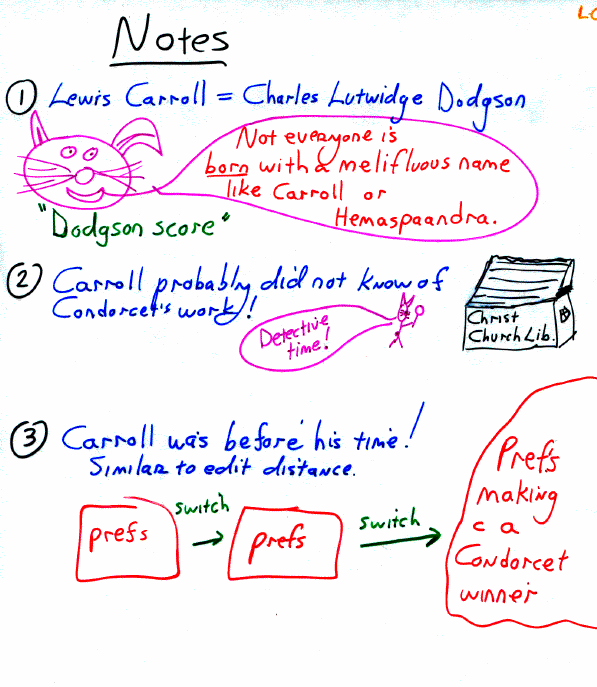 LC
Notes
① Lewis Carroll = Charles Lutwidge Dodgson
Not everyone is
born with a melifluous name
like Carroll or
Hemaspaandra.
"Dodgson score"
② Carroll probably did not know of
Condorcet's work!
Detective
time!
Christ
Church Lib.
③ Carroll was before his time!
Similar to edit distance.
prefs
switch
prefs
switch
Prefs
making
c a
Condorcet
winner